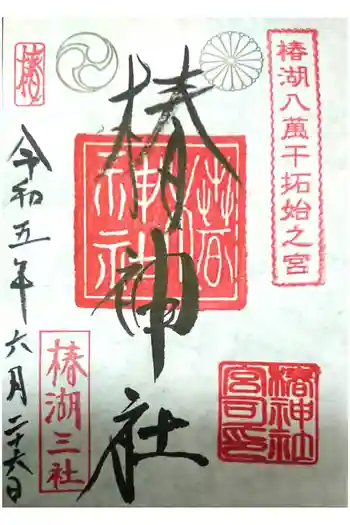 椿湖八萬干拓始之宮
椿
椿神社
椿神社
令和五年六月二十六日
椿湖三社
椿神社
宮司之印